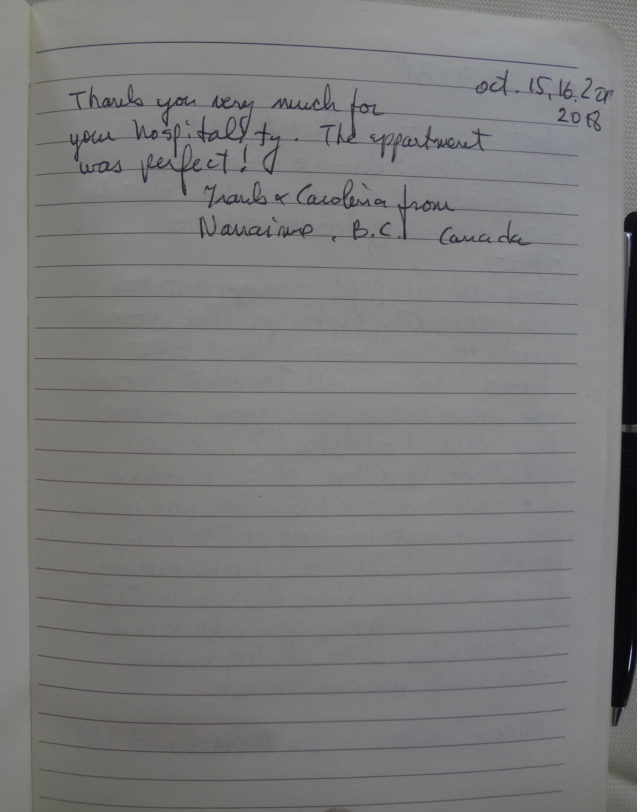 oct. 15, 16, 20
2018
Thank you very much for
your hospitality. The appartment
was perfect!
Frank & Carolina from
Nanaimo, B.C. Canada